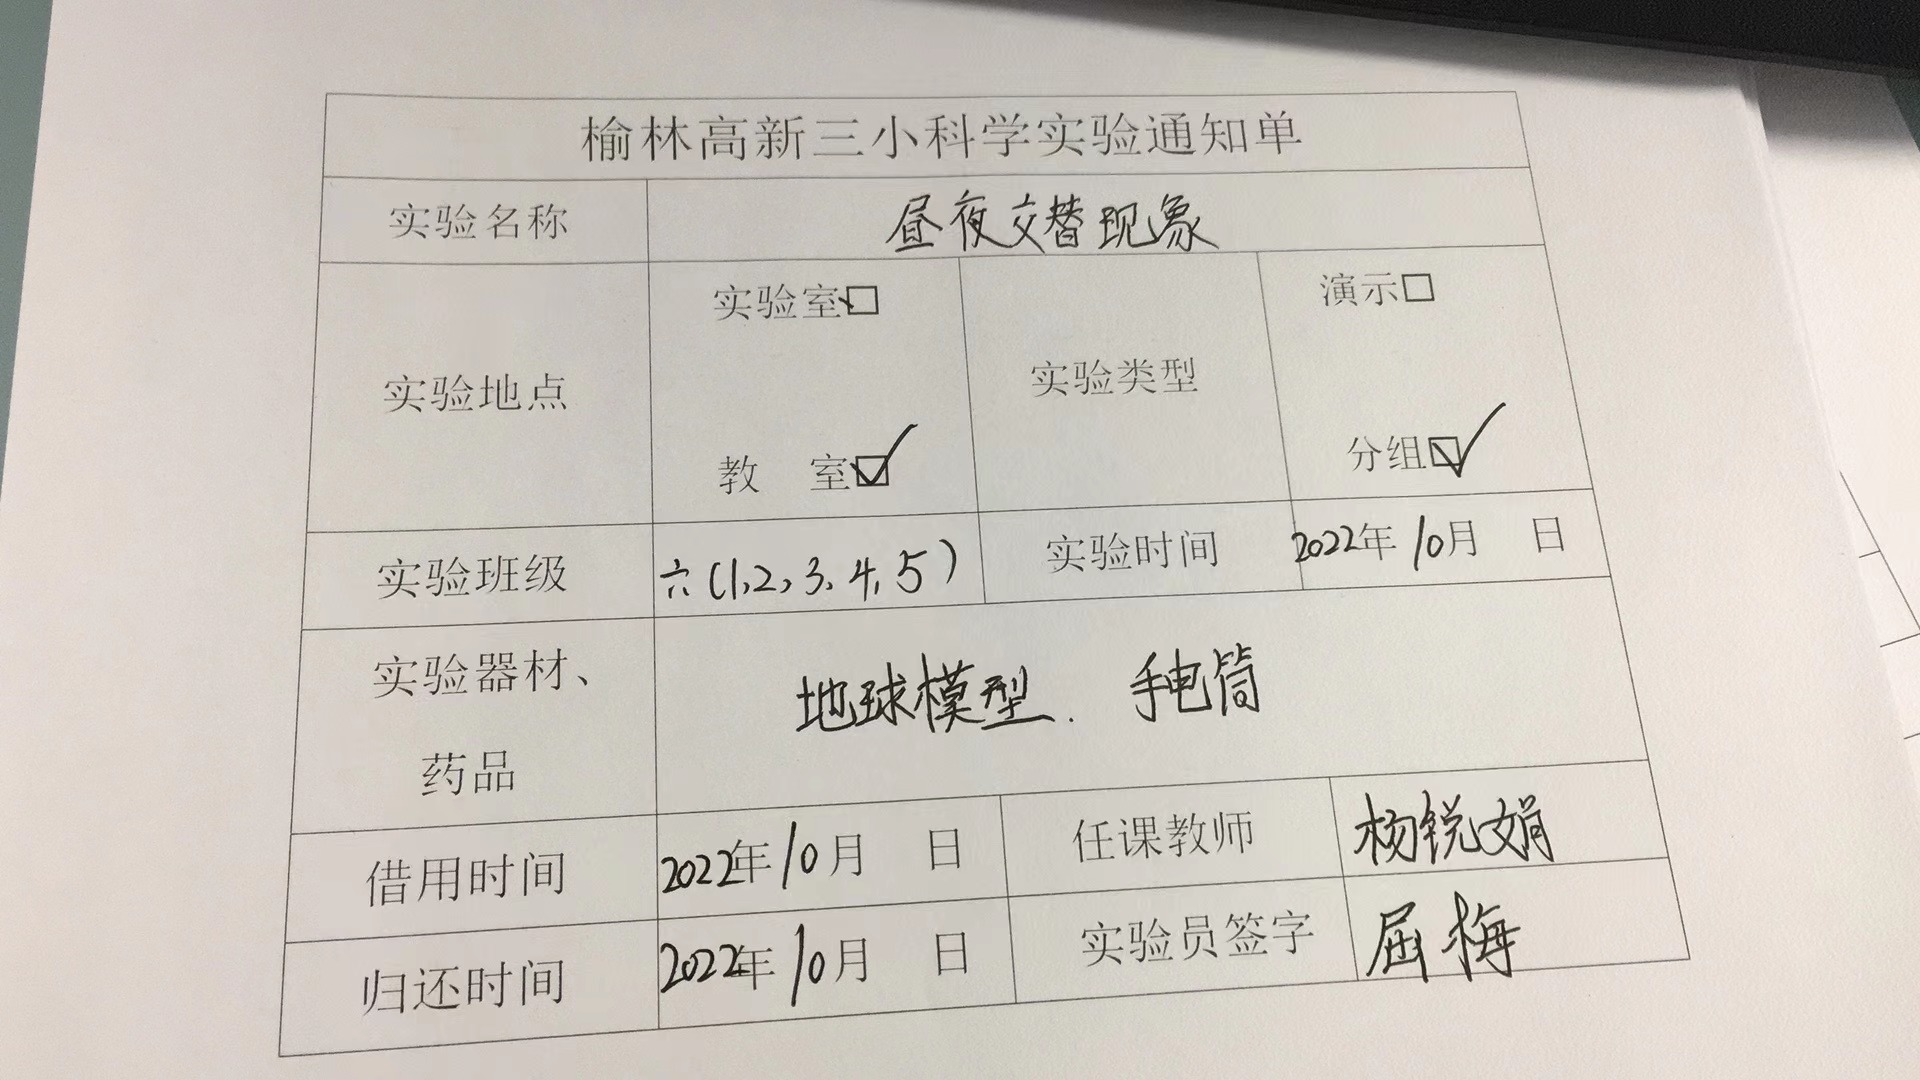 榆林高新三小科学实验通知单
实验名称 昼夜交替现象
实验室☐ 演示☐
实验地点 实验类型
教 室☑ 分组☑
实验班级 六(1,2,3,4,5) 实验时间 2022年10月 日
实验器材、
地球模型、手电筒
药品
借用时间 2022年10月 日 任课教师 杨锐娟
归还时间 2022年10月 日 实验员签字 屈梅